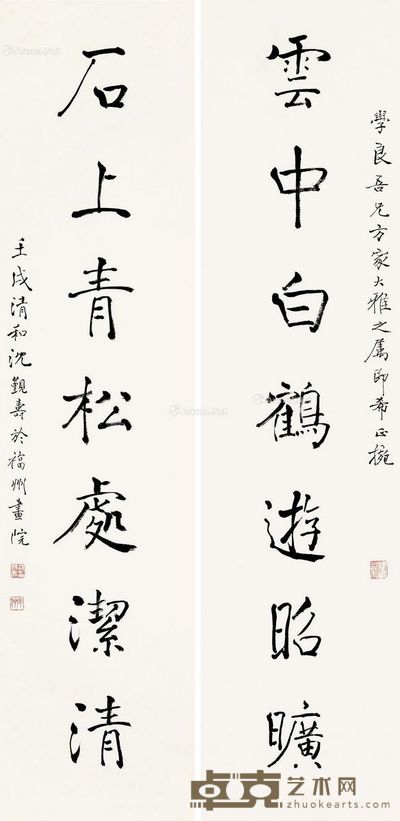 學良吾兄方家大雅之屬即希正捥
雲中白鶴遊昭曠
石上青松處潔清
壬戌清和沈覲壽於福州畫院
卓克艺术网
zhuokearts.com